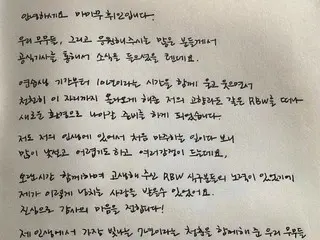 안녕하세요 마마무 휘인입니다!
우리 무무들, 그리고 응원해주시는 많은 분들께서
공식기사를 통해서 소식을 들으셨을 텐데요.
연습생 기간부터 10년이라는 시간을 함께 울고 웃으면서
청춘의 이 자리까지 올라오게 해준 저의 고향과도 같은 RBW를 떠나
새로운 환경으로 나아갈 준비를 하게 되었습니다.
저도 저의 인생에 있어서 처음 마주하는 일이다 보니
맘이 낯설고 어렵기도하고 여러감정이 드는데요,
오랜시간 함께하며 고생해주신 RBW 식구분들의 노력이 있었기에
제가 이렇게 넘치는 사랑을 받을수 있었어요.
진심으로 감사의 마음을 전합니다!
제 인생에서 가장 빛나는 7년이라는 청춘을 함께해 준 우리 무무들